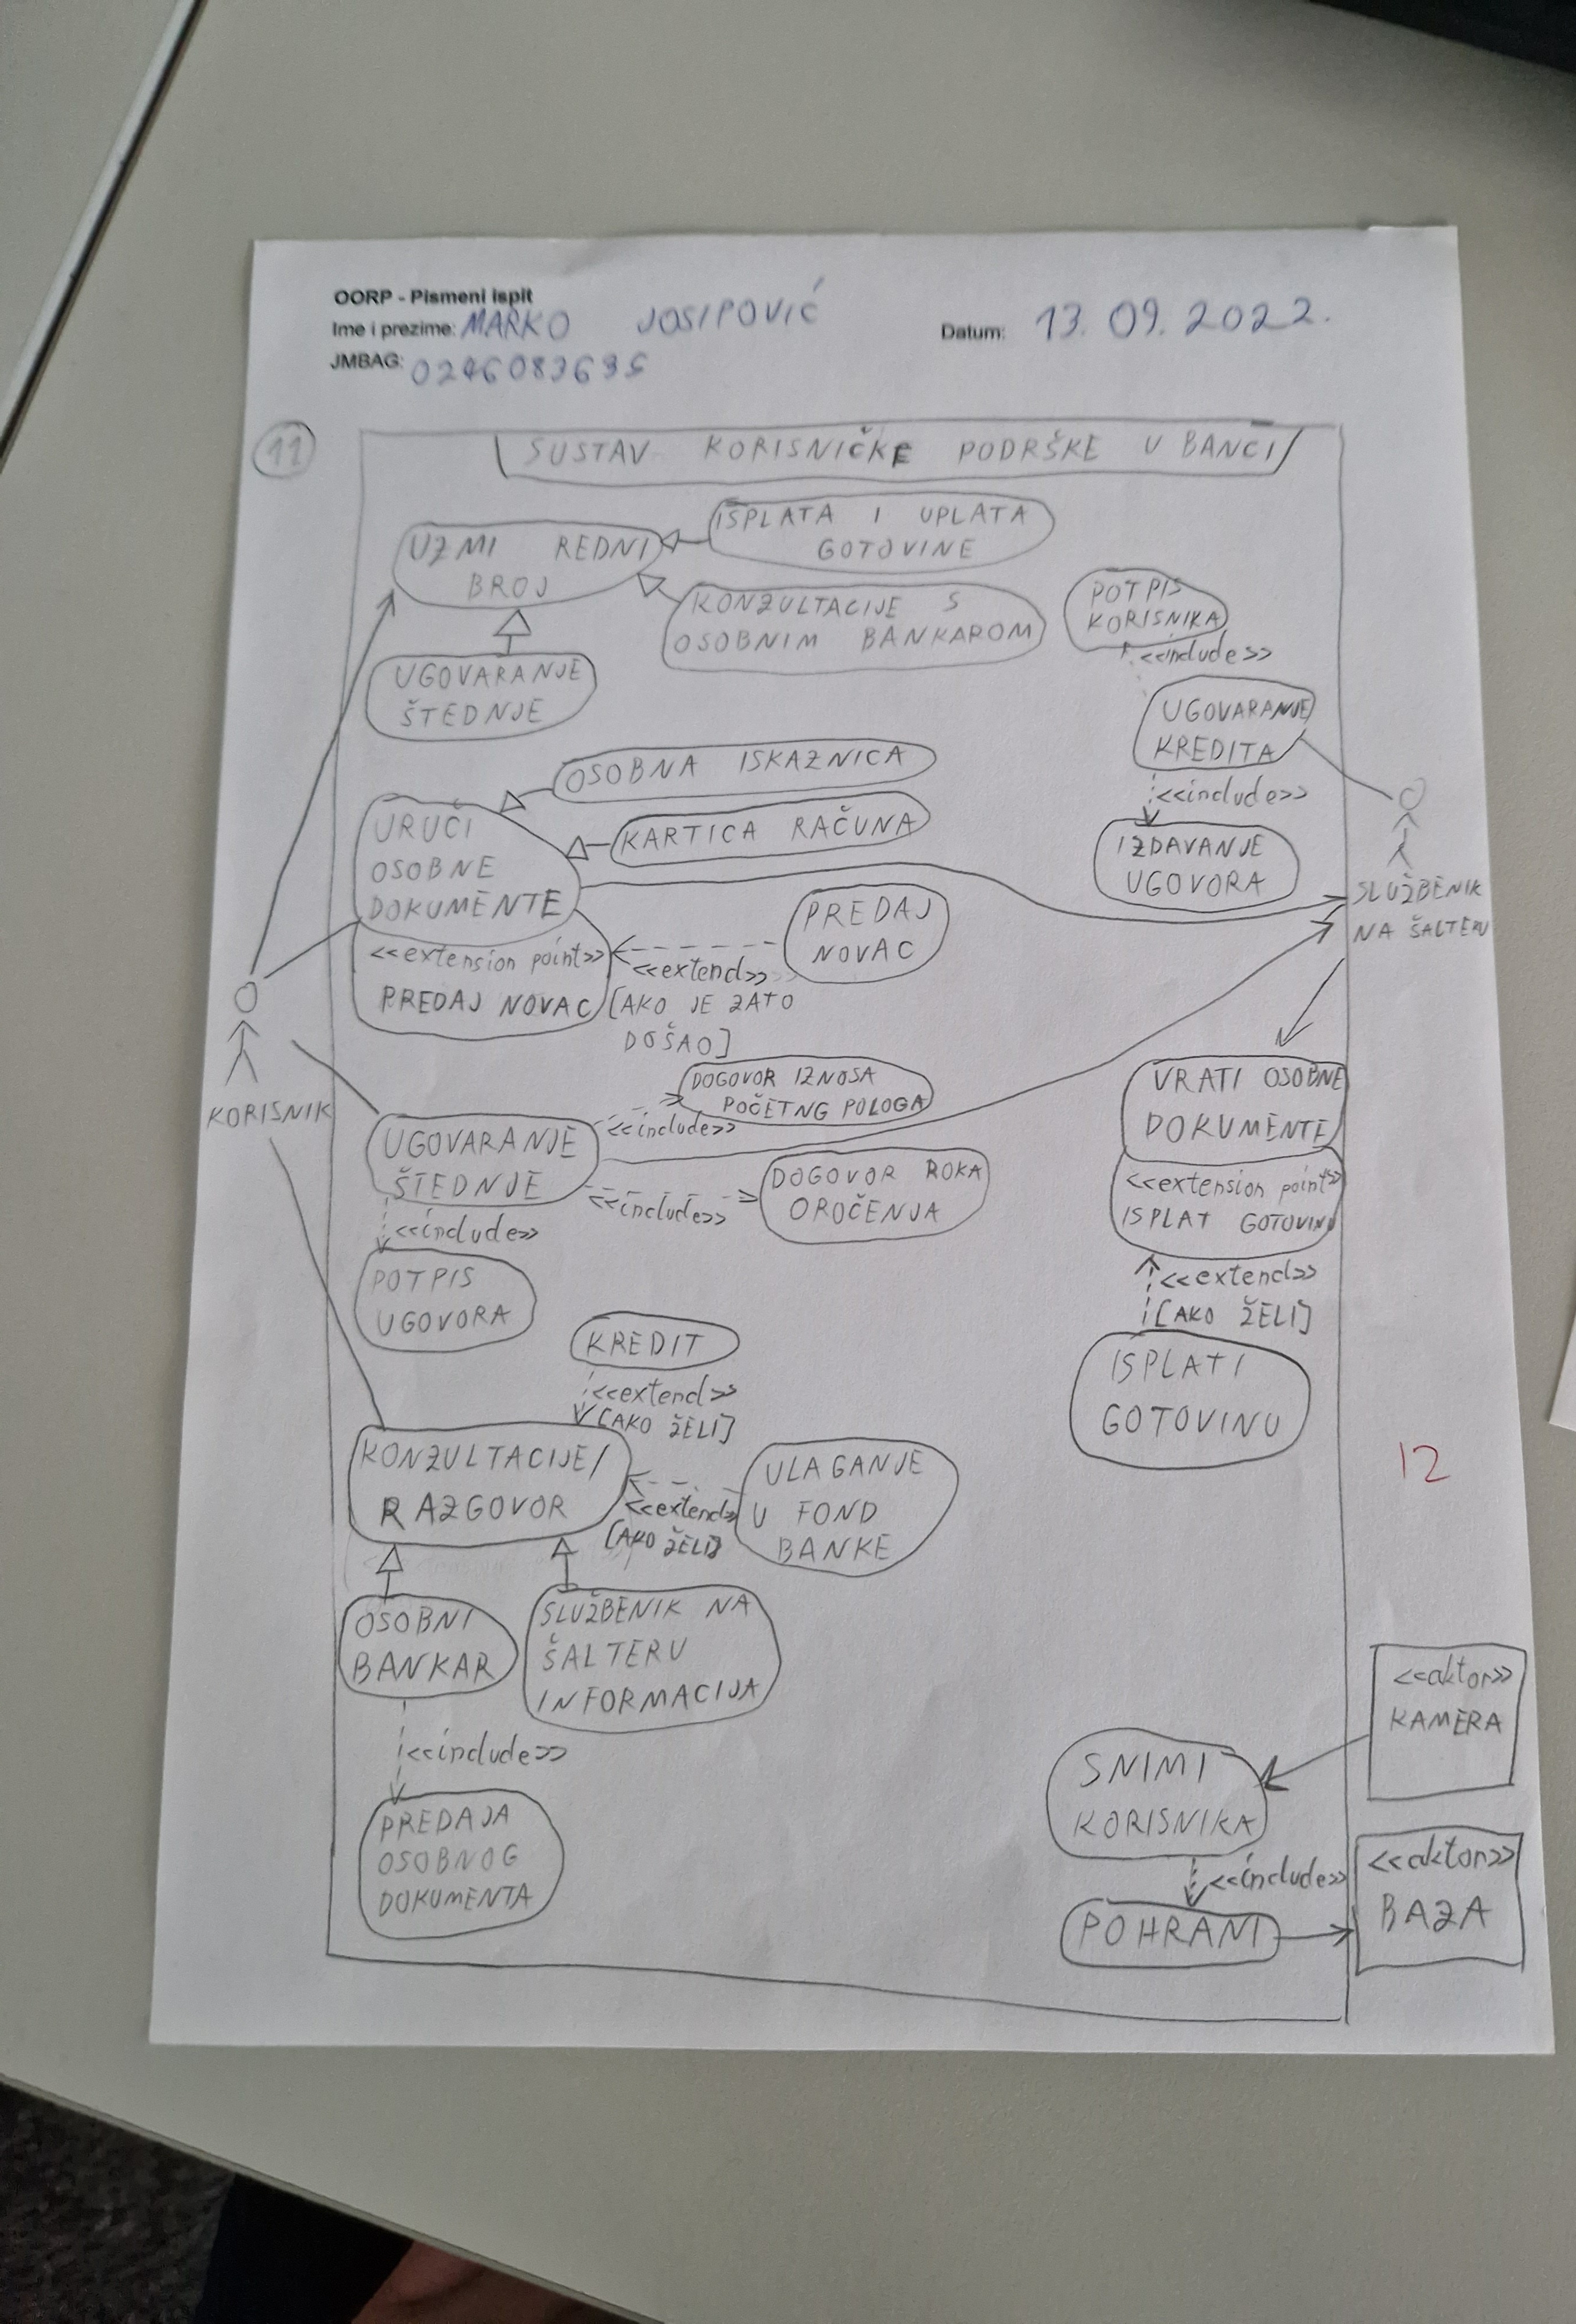 OORP - Pismeni ispit
Ime i prezime: MARKO JOSIPOVIĆ
Datum: 13. 09. 2022.
JMBAG: 0246083635
11
SUSTAV KORISNIČKE PODRŠKE U BANCI
ISPLATA I UPLATA
GOTOVINE
UZMI REDNI
BROJ
KONZULTACIJE S
OSOBNIM BANKAROM
POTPIS
KORISNIKA
<<include>>
UGOVARANJE
ŠTEDNJE
UGOVARANJE
KREDITA
<<include>>
IZDAVANJE
UGOVORA
SLUŽBENIK
NA ŠALTERU
OSOBNA ISKAZNICA
KARTICA RAČUNA
URUČI
OSOBNE
DOKUMENTE
<<extension point>>
PREDAJ NOVAC
PREDAJ
NOVAC
<<extend>>
[AKO JE ZATO
DOŠAO]
KORISNIK
DOGOVOR IZNOSA
POČETNG POLOGA
<<include>>
UGOVARANJE
ŠTEDNJE
<<include>>
DOGOVOR ROKA
OROČENJA
<<include>>
POTPIS
UGOVORA
VRATI OSOBNE
DOKUMENTE
<<extension point>>
ISPLAT GOTOVINU
<<extend>>
[AKO ŽELI]
ISPLATI
GOTOVINU
KREDIT
<<extend>>
[AKO ŽELI]
KONZULTACIJE/
RAZGOVOR
<<extend>>
[AKO ŽELI]
ULAGANJE
U FOND
BANKE
12
OSOBNI
BANKAR
SLUŽBENIK NA
ŠALTERU
INFORMACIJA
<<include>>
PREDAJA
OSOBNOG
DOKUMENTA
<<aktor>>
KAMERA
SNIMI
KORISNIKA
<<include>>
POHRANI
<<aktor>>
BAZA